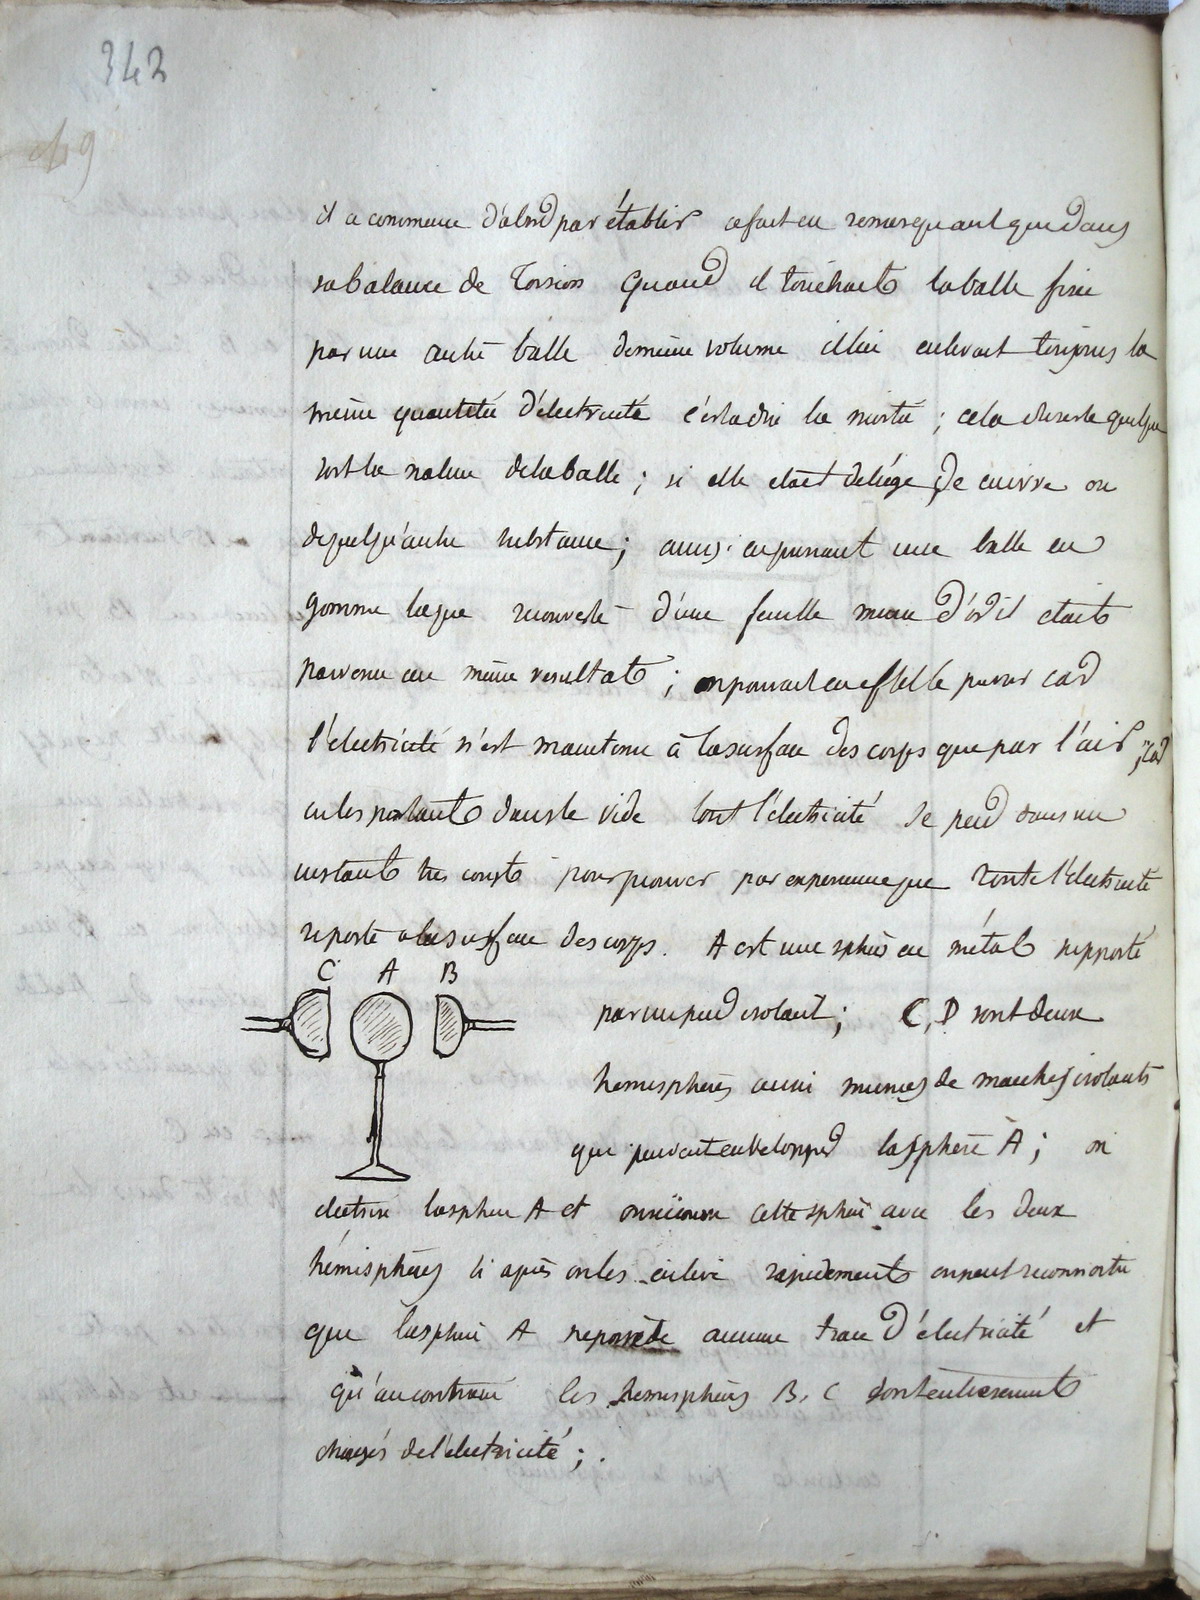 342
il a commence d'abord par établir ce fait en remarquant que dans
sa balance de Torsion Quand il touchait la balle fixe
par une autre balle de même volume il lui enlevait toujours la
même quantité d'électricité c'est a dire la moitié ; cela quelque
soit la nature de la balle ; si elle etait de liége, de cuivre ou
de quelqu'autre substance ; aussi en prenant une balle en
gomme laque recouverte d'une feuille mince d'or il etait
parvenu au même resultat ; on pouvait en effet le prevoir car
l'électricité n'est maintenue à la surface des corps que par l'air, car
en les portant dans le vide tout l'électricité se perd dans un
instant tres court pour prouver par experience que toute l'électricité
se porte a la surface des corps. A est une sphère en métal supporté
C A B
par un pied isolant ; C, D sont deux
hemisphères aussi munies de manches isolants
qui peuvent envelopper la sphère A ; on
electrise la sphere A et on recouvre cette sphère avec les deux
hémisphères si après on les enlève rapidement on peut reconnoitre
que la sphère A ne possède aucune trace d'électricité et
qu'au contraire les hemisphères B, C sont entierement
chargés de l'électricité ;